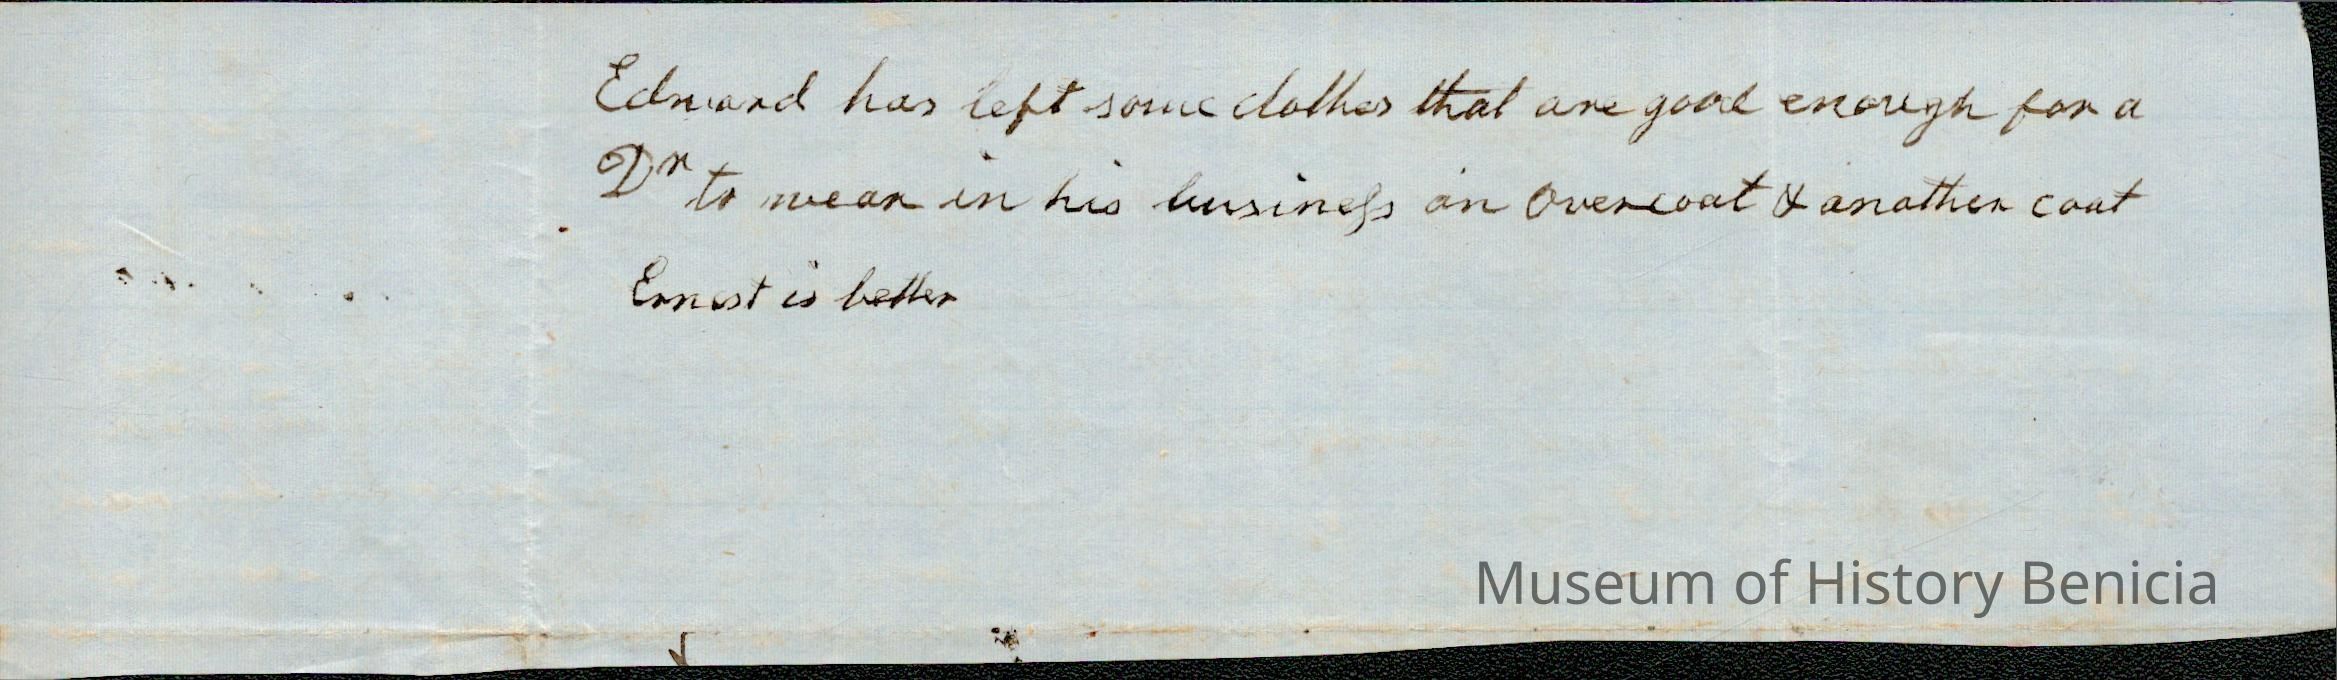 Edward has left some clothes that are good enough for a
Dr to wear in his business an overcoat & another coat
Ernest is better
Museum of History Benicia